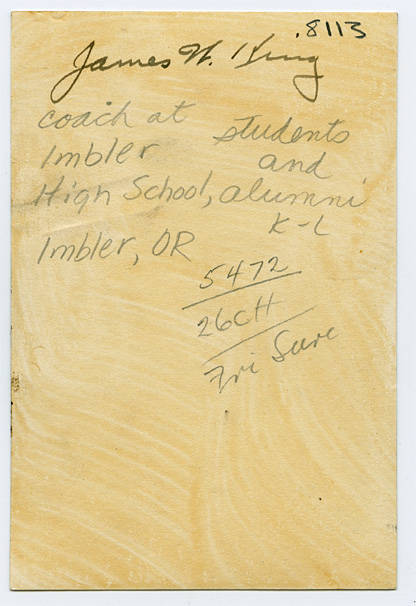 .8113
James W. King
coach at
Imbler
High School,
Imbler, OR
students
and
alumni
K-L
5472
26CH
Fri Sure